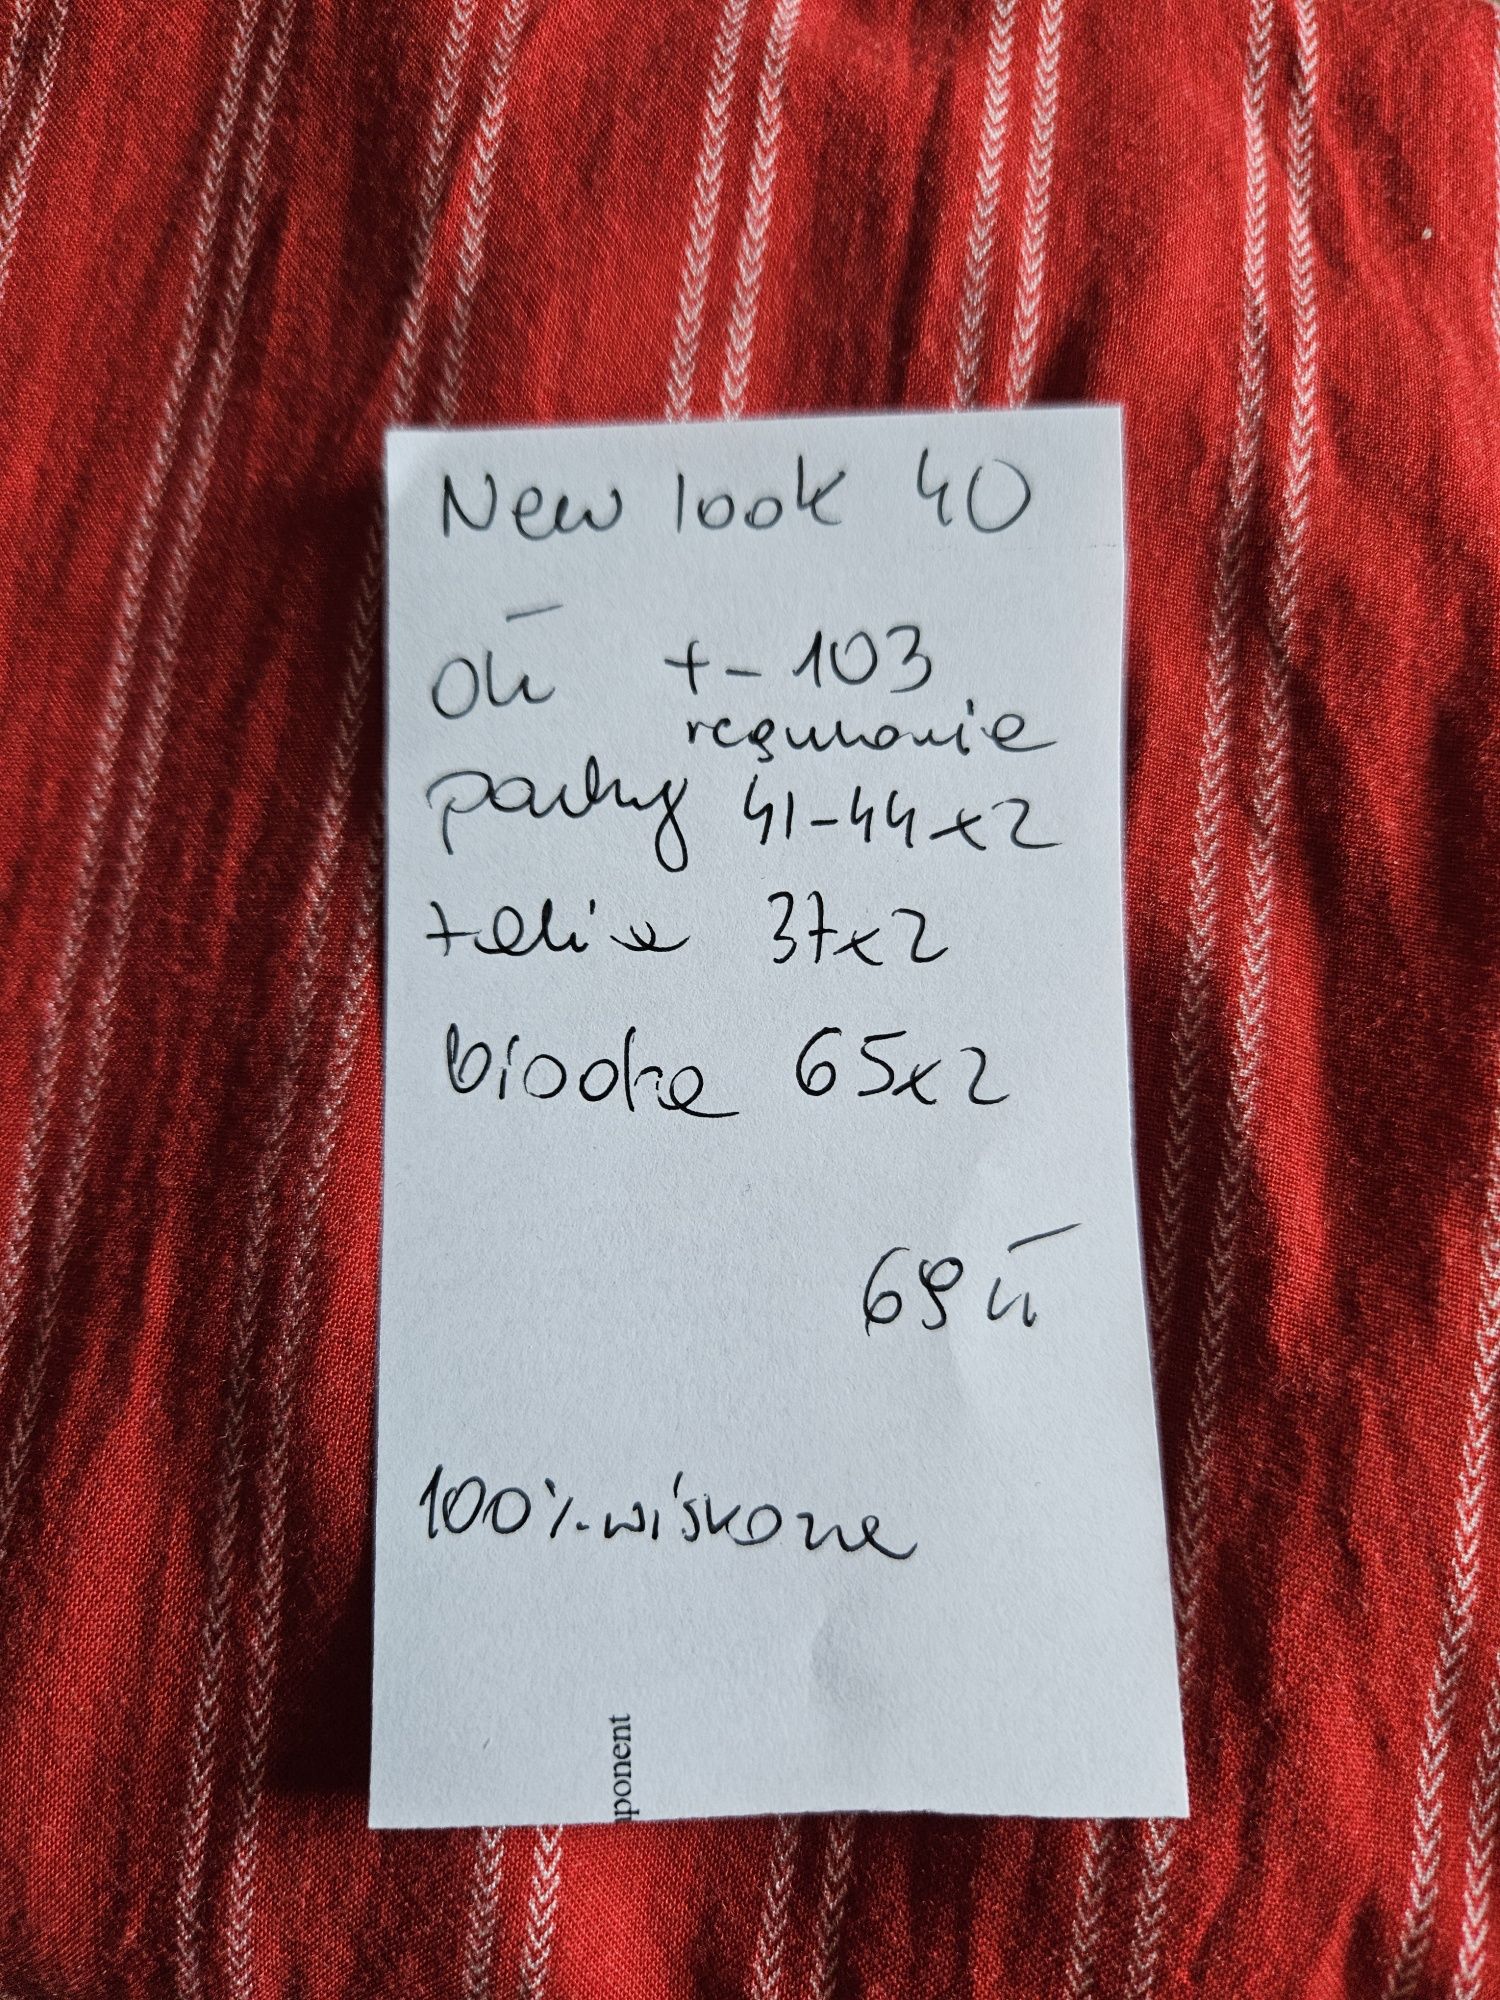 New look 40
dł +- 103
regulowanie
pachy 41-44x2
talia 37x2
biodra 65x2
69 zł
100% wiskoza
ponent